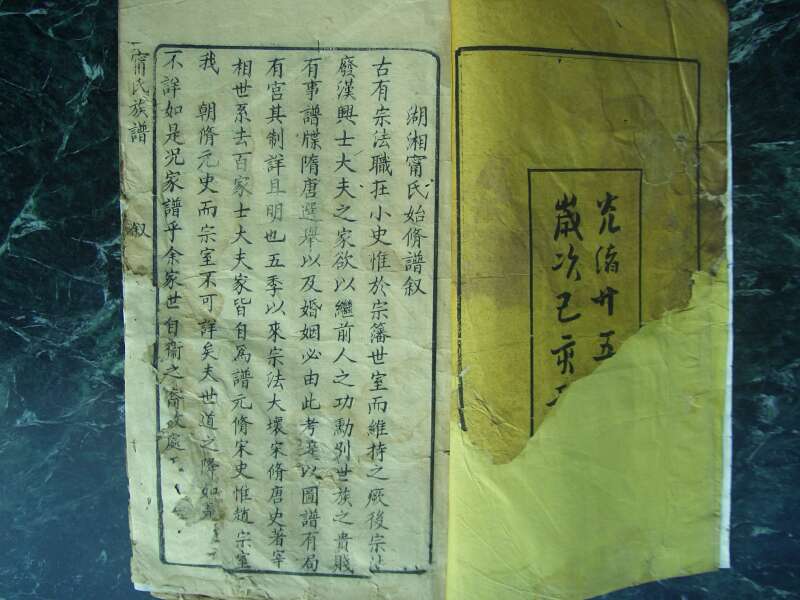 光緒廿五
歲次己亥
湖湘甯氏始脩譜叙
古有宗法職在小史惟於宗藩世室而維持之厥後宗法
廢漢興士大夫之家欲以繼前人之功勳別世族之貴賤
有事譜牒隋唐選舉以及婚姻必由此考是以圖譜有局
有宮其制詳且明也五季以來宗法大壞宋脩唐史著宰
相世系去百家士大夫家皆自為譜元脩宋史惟趙宗室
我 朝脩元史而宗室不可詳矣夫世道之降如
不詳如是況家譜乎余家世自衞之裔 處
甯氏族譜 叙